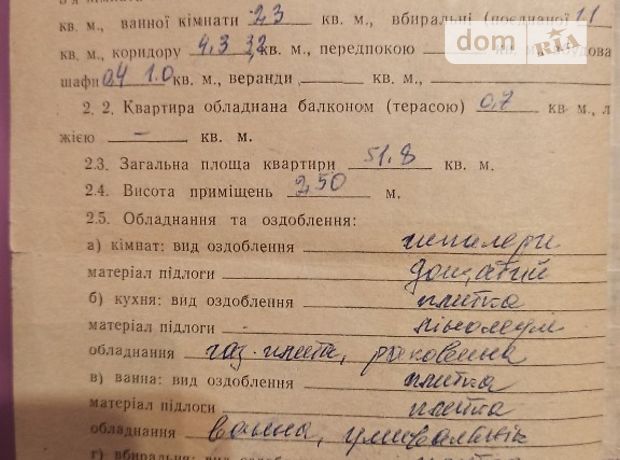 кв. м., ванної кімнати 2,3 кв. м., вбиральні (поєднаної 1,1
кв. м., коридору 4,3 3,2 кв. м., передпокою
шафи 0,4 1.0 кв. м., веранди кв. м.,
2. 2. Квартира обладнана балконом (терасою) 0,7 кв м., л
жією – кв. м.
2.3. Загальна площа квартири 51.8 кв. м.
2.4. Висота приміщень 2,50 м.
2.5. Обладнання та оздоблення:
а) кімнат: вид оздоблення шпалери
матеріал підлоги дощатий
б) кухня: вид оздоблення плитка
матеріал підлоги лінолеум
обладнання газ. плита, раковина
в) ванна: вид оздоблення плитка
матеріал підлоги плитка
обладнання ванна, умивальник
г) вбиральня: вид
dom RIA